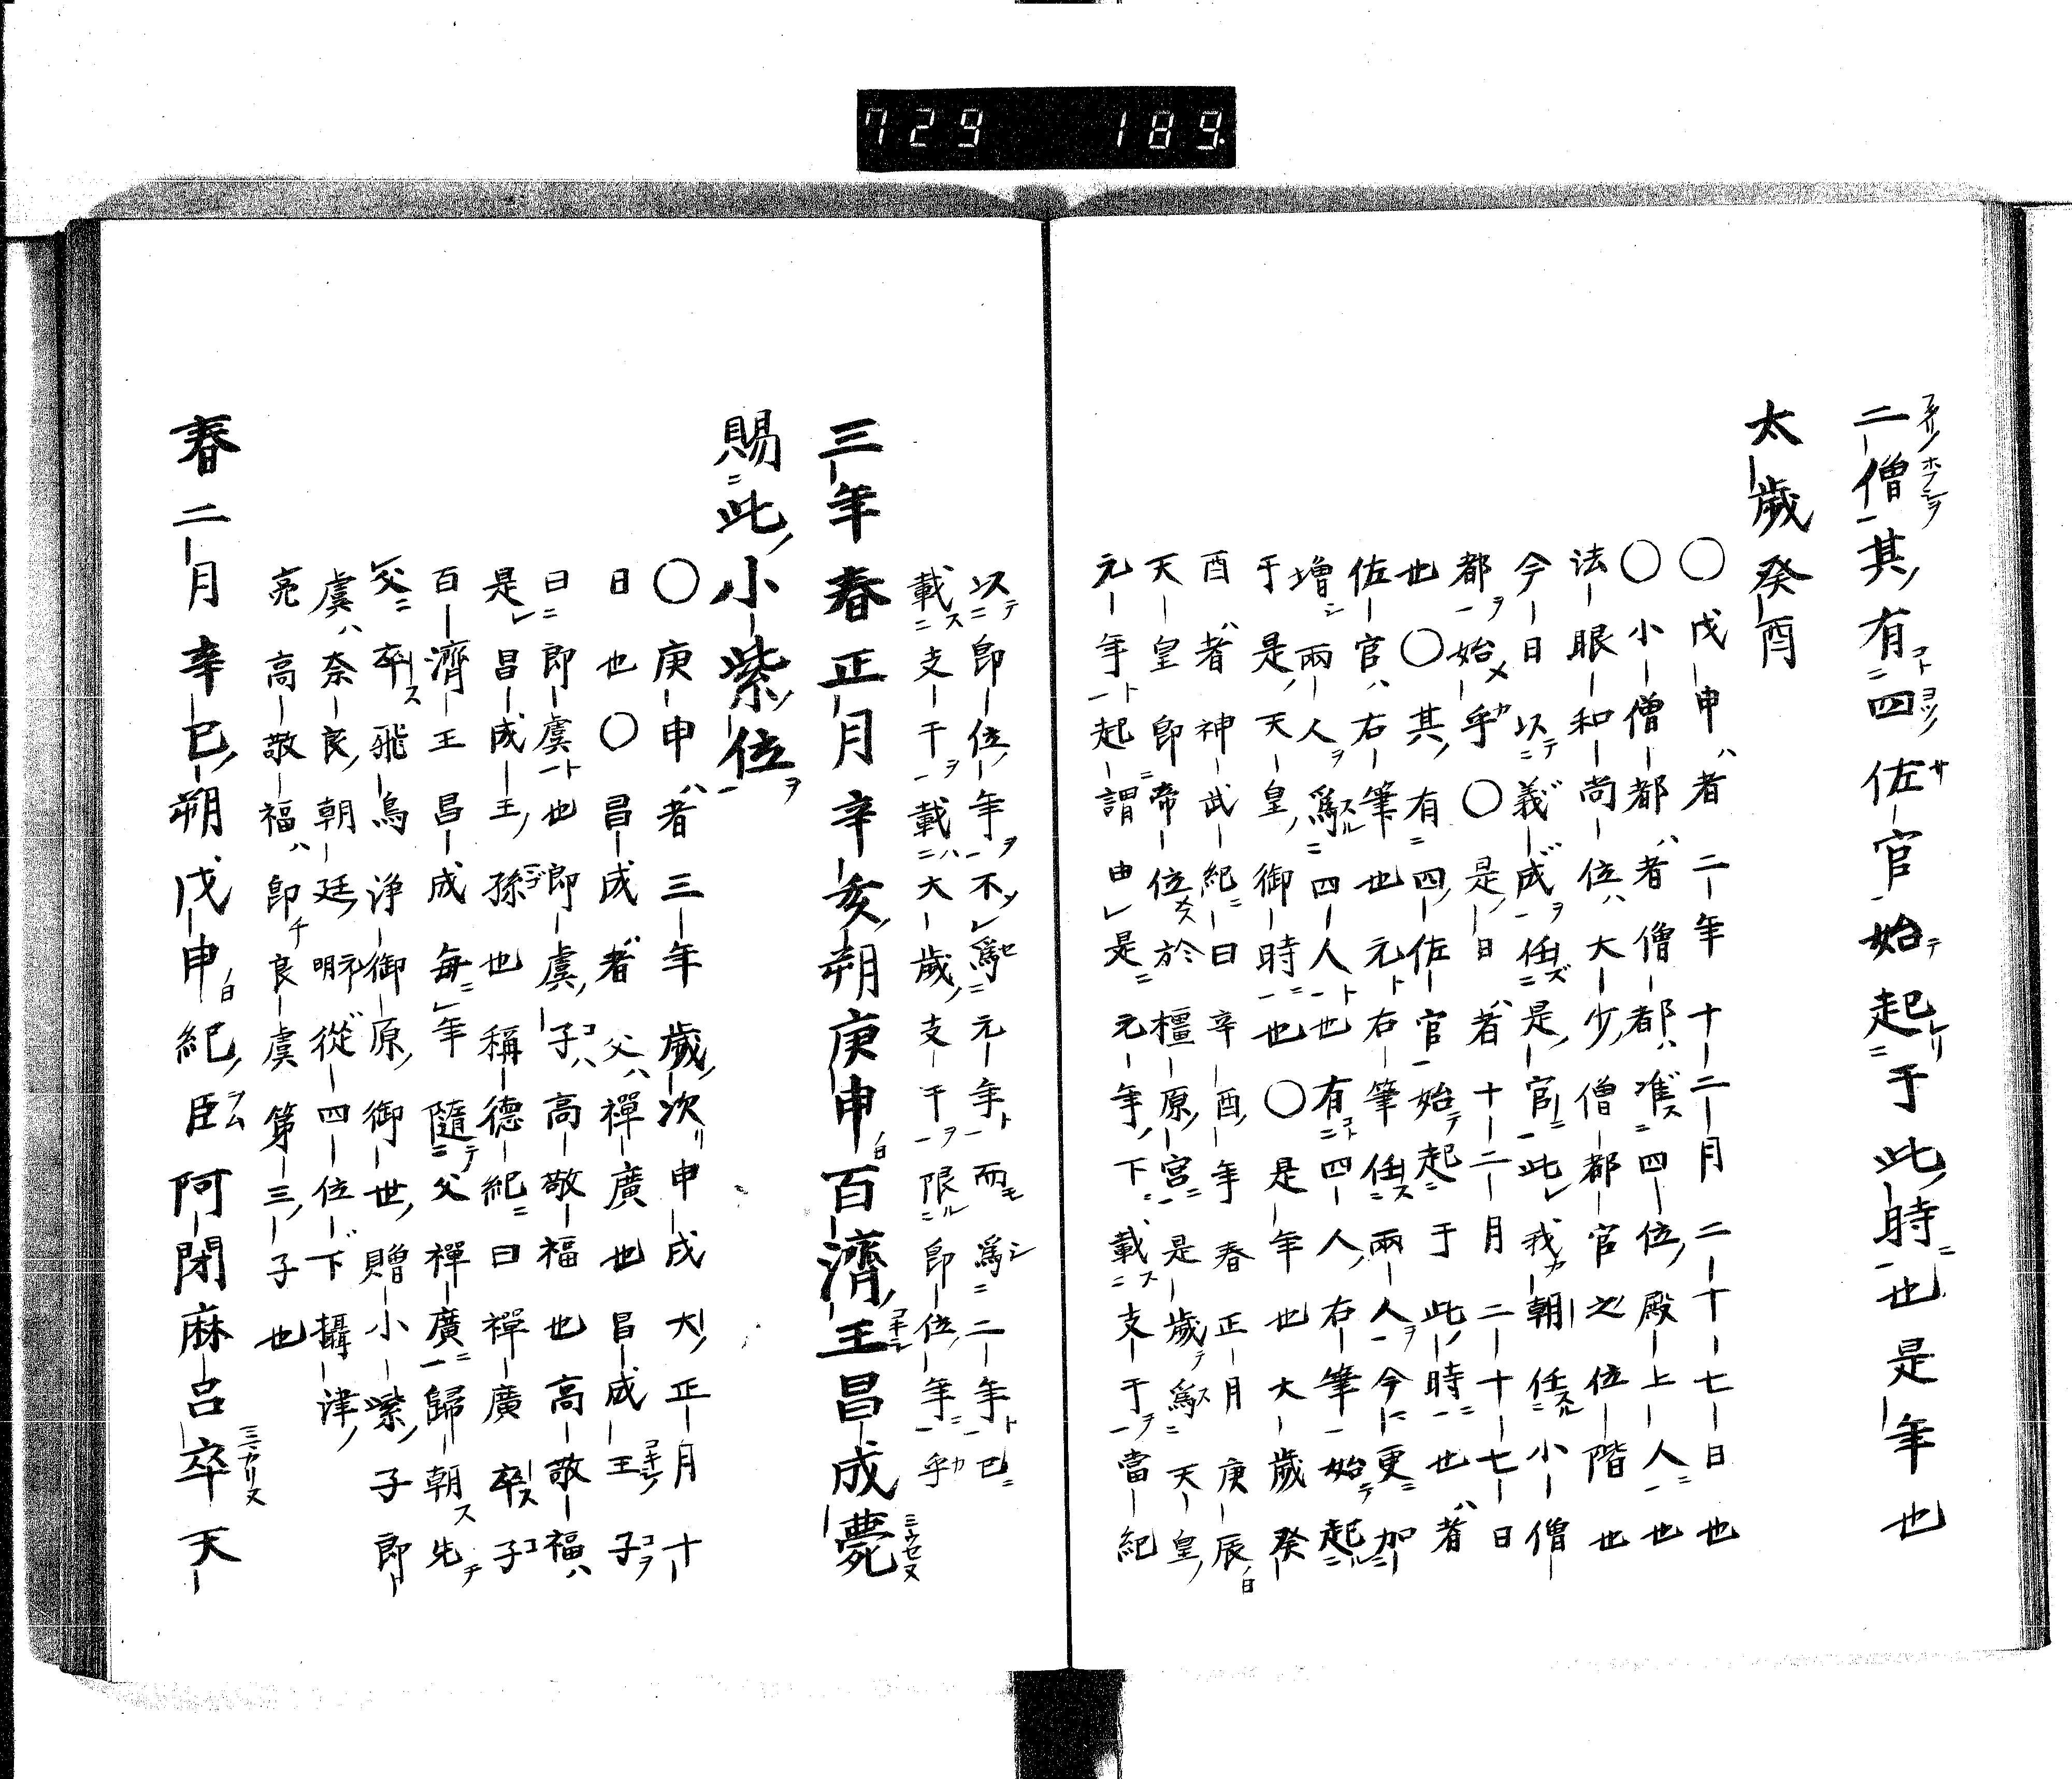 729 189
二僧其有四佐官始起于此時也是年也
太歲癸酉
〇戊申者二年十二月二十七日也
〇小僧都者僧都准四位殿上人也
法眼和尚位大少僧都官之位階也
今日以義成任是官此我朝任小僧
都始乎〇是日者十二月二十七日
也〇其有四佐官始起于此時也者
佐官右筆也元右筆任兩人今更加
増兩人爲四人也有四人右筆始起
于是天皇御時也〇是年也大歲癸
酉者神武紀曰辛酉年春正月庚辰
天皇即帝位於橿原宮是歲爲天皇
元年起謂由是元年下載支干當紀
以即位年不爲元年而爲二年已
載支干載大歲支干限即位年乎
三年春正月辛亥朔庚申百濟王昌成薨
賜此小紫位
〇庚申者三年歲次申戌大正月十
日也〇昌成者父禪廣也昌成王子
曰郎虞也郎虞子高敬福也高敬福
是昌成王孫也稱德紀曰禪廣卒子
百濟王昌成毎年隨父禪廣歸朝先
父卒飛鳥浄御原御世贈小紫子郎
虞奈良朝廷從四位下攝津
亮高敬福即良虞第三子也
春二月辛巳朔戊申紀臣阿閉麻呂卒天